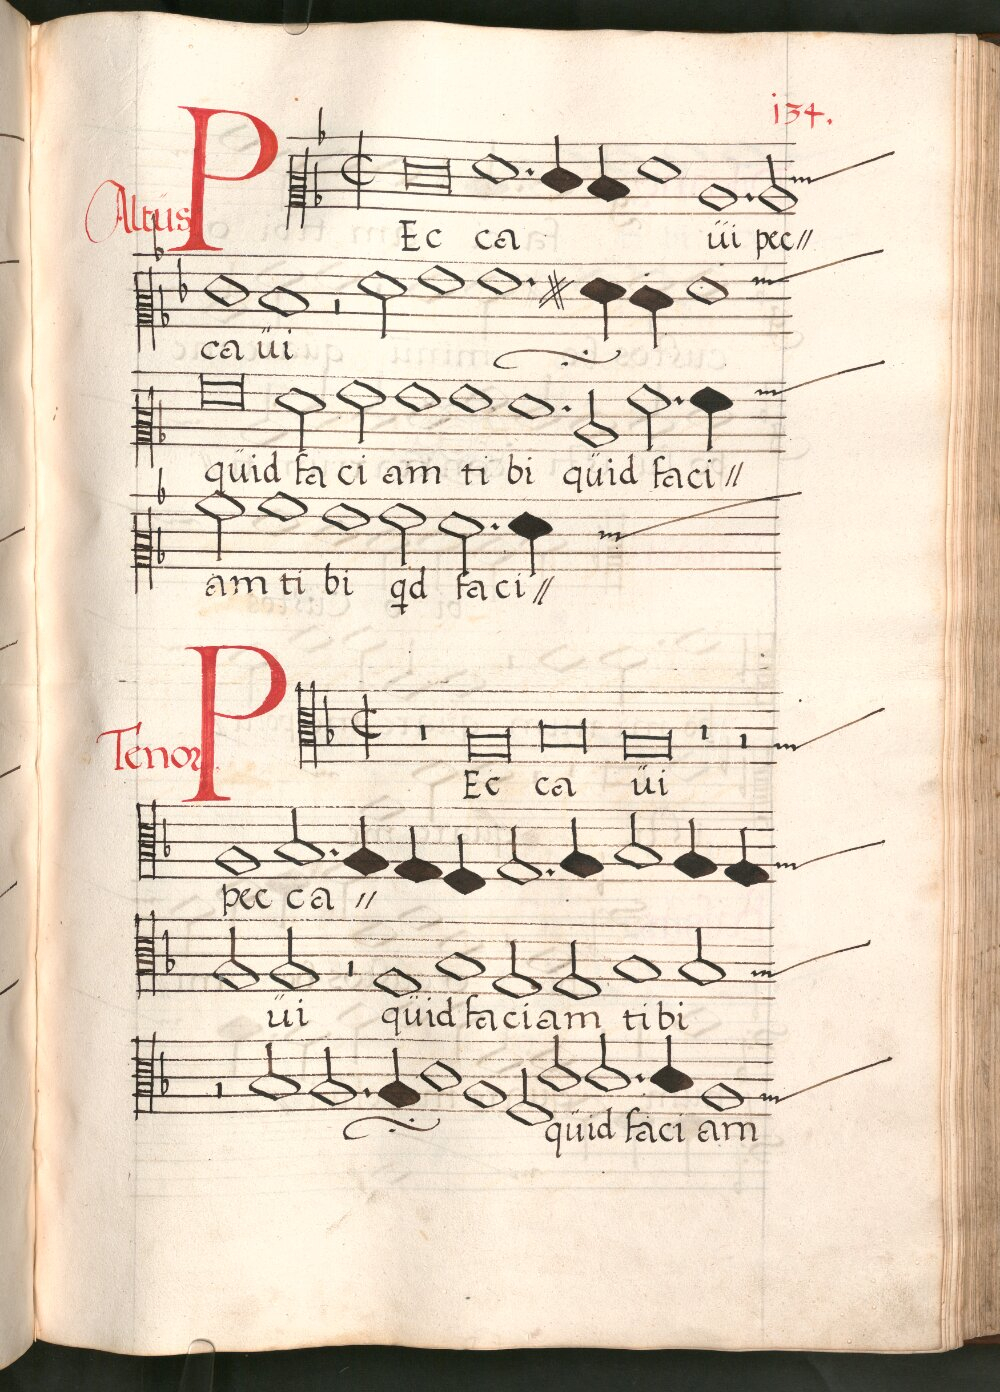 134.
Altüs
PEc ca üi pec//
ca üi
qüid fa ci am ti bi qüid faci//
am ti bi qd faci//
Tenor
PEc ca üi
pec ca //
üi qüid faciam tibi
qüid faci am